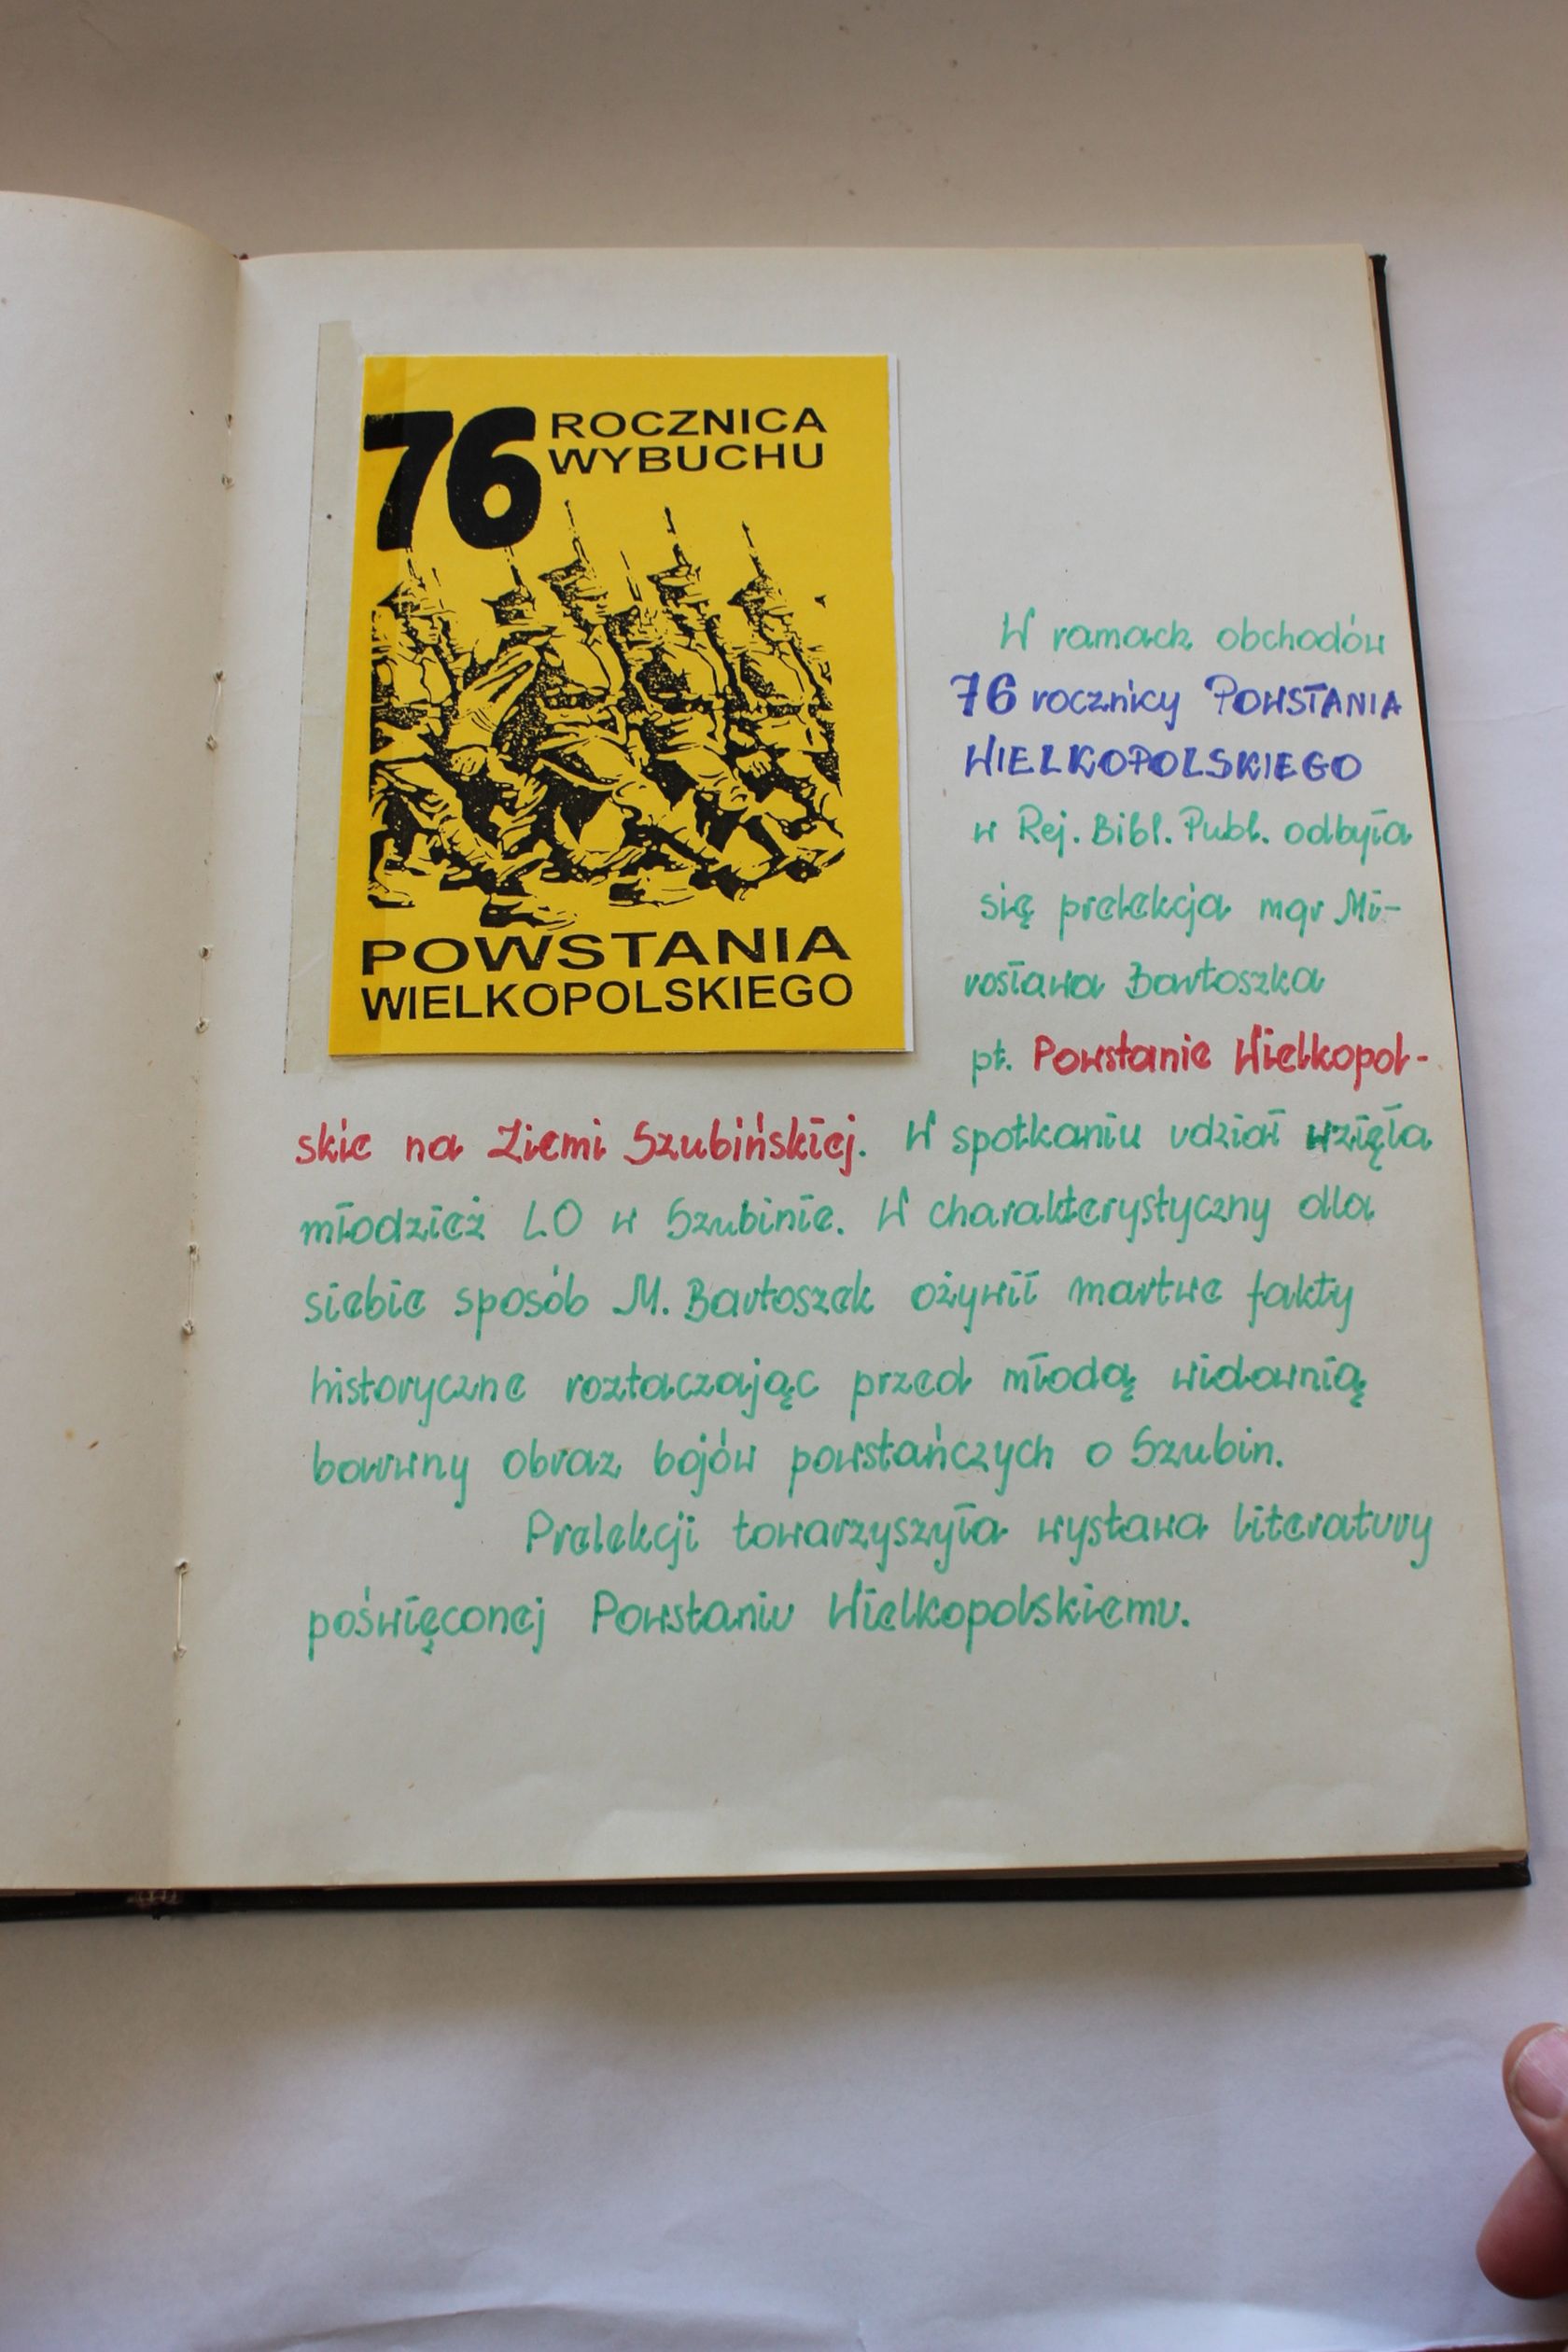 76 ROCZNICA
WYBUCHU
POWSTANIA
WIELKOPOLSKIEGO
W ramach obchodów
76 rocznicy POWSTANIA
WIELKOPOLSKIEGO
w Rej. Bibl. Publ. odbyła
się prelekcja mgr Mi-
rosława Bartoszka
pt. Powstanie Wielkopol-
skie na Ziemi Szubińskiej. W spotkaniu udział wzięła
młodzież LO w Szubinie. W charakterystyczny dla
siebie sposób M. Bartoszek ożywił martwe fakty
historyczne roztaczając przed młodą widownią
barwny obraz bojów powstańczych o Szubin.
Prelekcji towarzyszyła wystawa literatury
poświęconej Powstaniu Wielkopolskiemu.